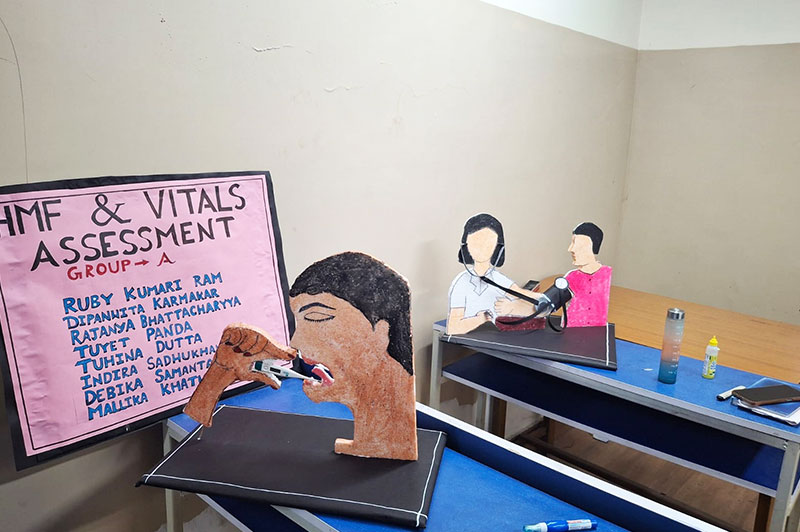 HMF & VITALS
ASSESSMENT
GROUP → A
RUBY KUMARI RAM
DIPANWITA KARMAKAR
RAJANYA BHATTACHARYYA
TUYET PANDA
TUHINA DAS
INDIRA SADHUKHA
DEBIKA SAMANTA
MALLIKA KHAT